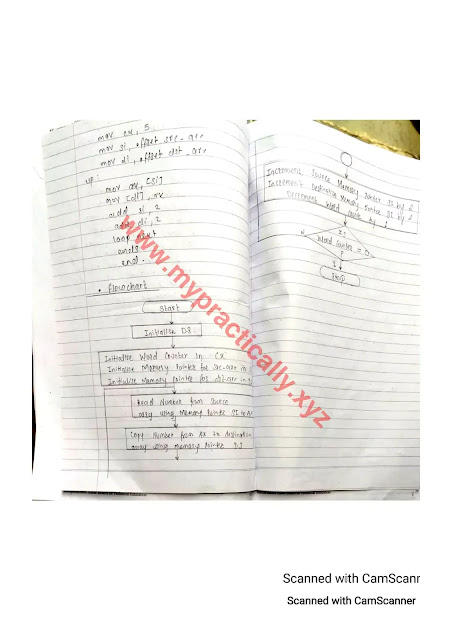 mov cx, 5
mov si, offset src_arr
mov di, offset dst_arr
up:
mov ax, [si]
mov [di], ax
add si, 2
add di, 2
loop next
ends
end.
• Flowchart
Start
Initialise DS
Initialise Word Counter in CX
Initialise Memory Pointer for src-arr in
Initialise Memory Pointer for dst-arr in
Read Number from Source
array using Memory Pointer SI to AX
Copy Number from AX to destination
array using memory pointer DI
Increment Source Memory Pointer SI by 2
Increment Destination Memory Pointer DI by 2
Decrement Word Count by 1
Word Counter = 0
Stop
www.mypractically.xyz
Scanned with CamScanr
Scanned with CamScanner